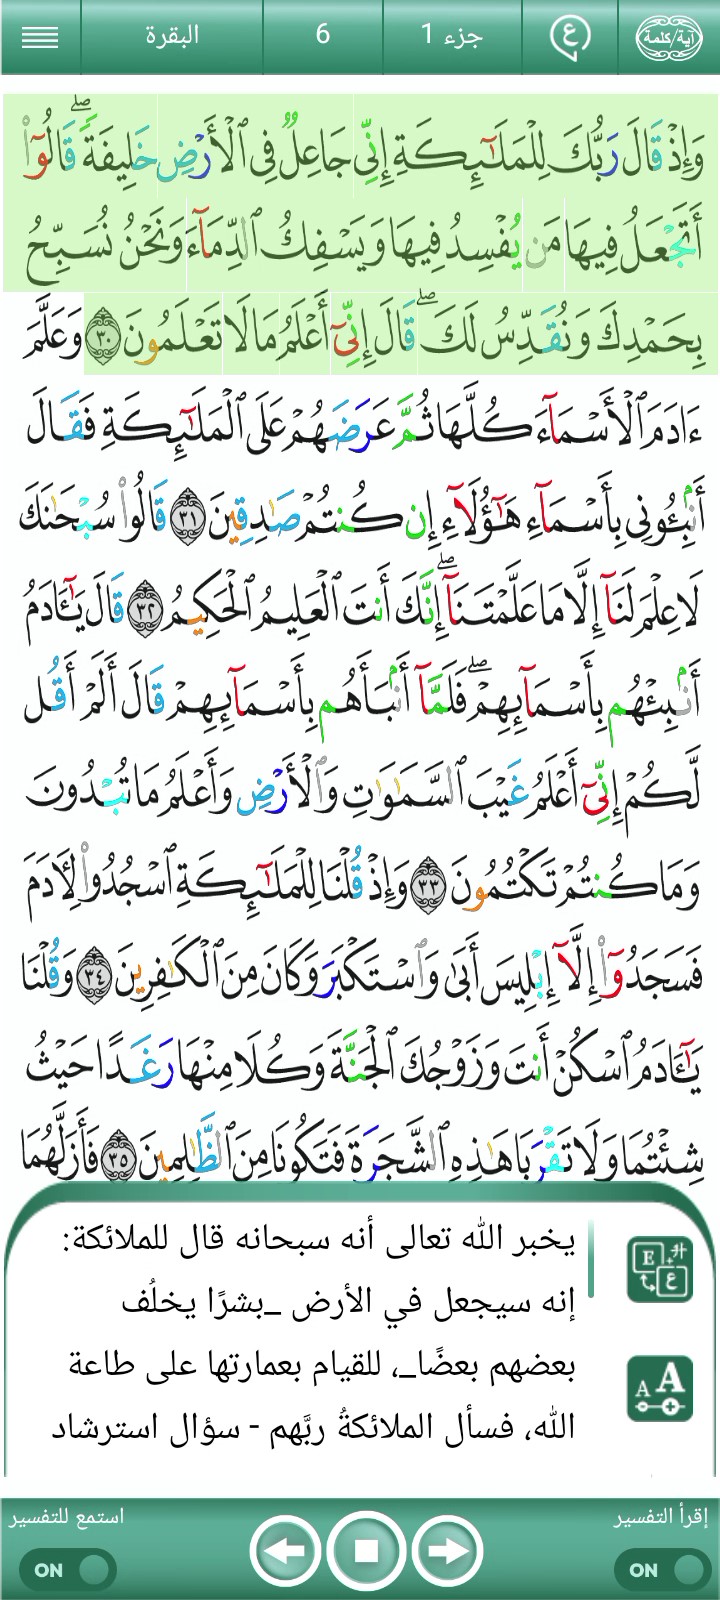 آية/كلمة ع جزء 1 6 البقرة
وَإِذْ قَالَ رَبُّكَ لِلْمَلَٰٓئِكَةِ إِنِّي جَاعِلٌ فِي ٱلْأَرْضِ خَلِيفَةً ۖ قَالُوٓا۟
أَتَجْعَلُ فِيهَا مَن يُفْسِدُ فِيهَا وَيَسْفِكُ ٱلدِّمَآءَ وَنَحْنُ نُسَبِّحُ
بِحَمْدِكَ وَنُقَدِّسُ لَكَ ۖ قَالَ إِنِّيٓ أَعْلَمُ مَا لَا تَعْلَمُونَ ٣٠ وَعَلَّمَ
ءَادَمَ ٱلْأَسْمَآءَ كُلَّهَا ثُمَّ عَرَضَهُمْ عَلَى ٱلْمَلَٰٓئِكَةِ فَقَالَ
أَنۢبِـُٔونِي بِأَسْمَآءِ هَٰٓؤُلَآءِ إِن كُنتُمْ صَٰدِقِينَ ٣١ قَالُوا۟ سُبْحَٰنَكَ
لَا عِلْمَ لَنَآ إِلَّا مَا عَلَّمْتَنَآ ۖ إِنَّكَ أَنتَ ٱلْعَلِيمُ ٱلْحَكِيمُ ٣٢ قَالَ يَٰٓـَٔادَمُ
أَنۢبِئْهُم بِأَسْمَآئِهِمْ ۖ فَلَمَّآ أَنۢبَأَهُم بِأَسْمَآئِهِمْ قَالَ أَلَمْ أَقُل
لَّكُمْ إِنِّيٓ أَعْلَمُ غَيْبَ ٱلسَّمَٰوَٰتِ وَٱلْأَرْضِ وَأَعْلَمُ مَا تُبْدُونَ
وَمَا كُنتُمْ تَكْتُمُونَ ٣٣ وَإِذْ قُلْنَا لِلْمَلَٰٓئِكَةِ ٱسْجُدُوا۟ لِـَٔادَمَ
فَسَجَدُوٓا۟ إِلَّآ إِبْلِيسَ أَبَىٰ وَٱسْتَكْبَرَ وَكَانَ مِنَ ٱلْكَٰفِرِينَ ٣٤ وَقُلْنَا
يَٰٓـَٔادَمُ ٱسْكُنْ أَنتَ وَزَوْجُكَ ٱلْجَنَّةَ وَكُلَا مِنْهَا رَغَدًا حَيْثُ
شِئْتُمَا وَلَا تَقْرَبَا هَٰذِهِ ٱلشَّجَرَةَ فَتَكُونَا مِنَ ٱلظَّٰلِمِينَ ٣٥ فَأَزَلَّهُمَا
يخبر الله تعالى أنه سبحانه قال للملائكة:
إنه سيجعل في الأرض _بشرًا يخلُف
بعضهم بعضًا_، للقيام بعمارتها على طاعة
الله، فسأل الملائكةُ ربَّهم - سؤال استرشاد
E ع
A A
إقرأ التفسير استمع للتفسير
ON ON